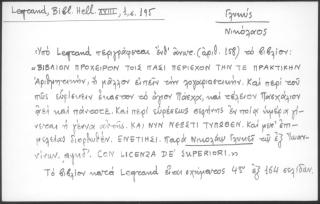 Legrand, Bibl. Hell. XVIII, 1, σ. 195
Γλυκύς
Νικόλαος
Ὑπὸ Legrand περιγράφεται ἐνθ' ἀνωτ. (ἀριθ. 158) τὸ βιβλίον:
«ΒΙΒΛΙΟΝ ΠΡΟΧΕΙΡΟΝ ΤΟΙΣ ΠΑΣΙ ΠΕΡΙΕΧΟΝ ΤΗΝ ΤΕ ΠΡΑΚΤΙΚΗΝ
Ἀριθμητικὴν, ἢ μᾶλλον εἰπεῖν τὴν λογαριαστικήν. Καὶ περὶ τοῦ
πῶς εὑρίσκειν ἕκαστον τὸ ἅγιον Πάσχα, καὶ τέλειον Πασχάλιον
ἀεὶ καὶ πάντοτε. Καὶ περὶ εὑρέσεως σελήνης ἐν ποίᾳ ἡμέρᾳ γί-
νεται ἡ γέννα αὐτῆς. ΚΑΙ ΝΥΝ ΝΕΩΣΤΙ ΤΥΠΩΘΕΝ. Καὶ μετ' ἐπι-
μελείας διορθωθέν. ΕΝΕΤΙΗΣΙ. Παρὰ Νικολάῳ Γλυκεῖ τῷ ἐξ Ἰωαν-
νίνων. CON LICENZA DE' SUPERIORI.»
Τὸ βιβλίον κατὰ Legrand εἶναι σχήματος 4ου ἐξ 164 σελίδων.